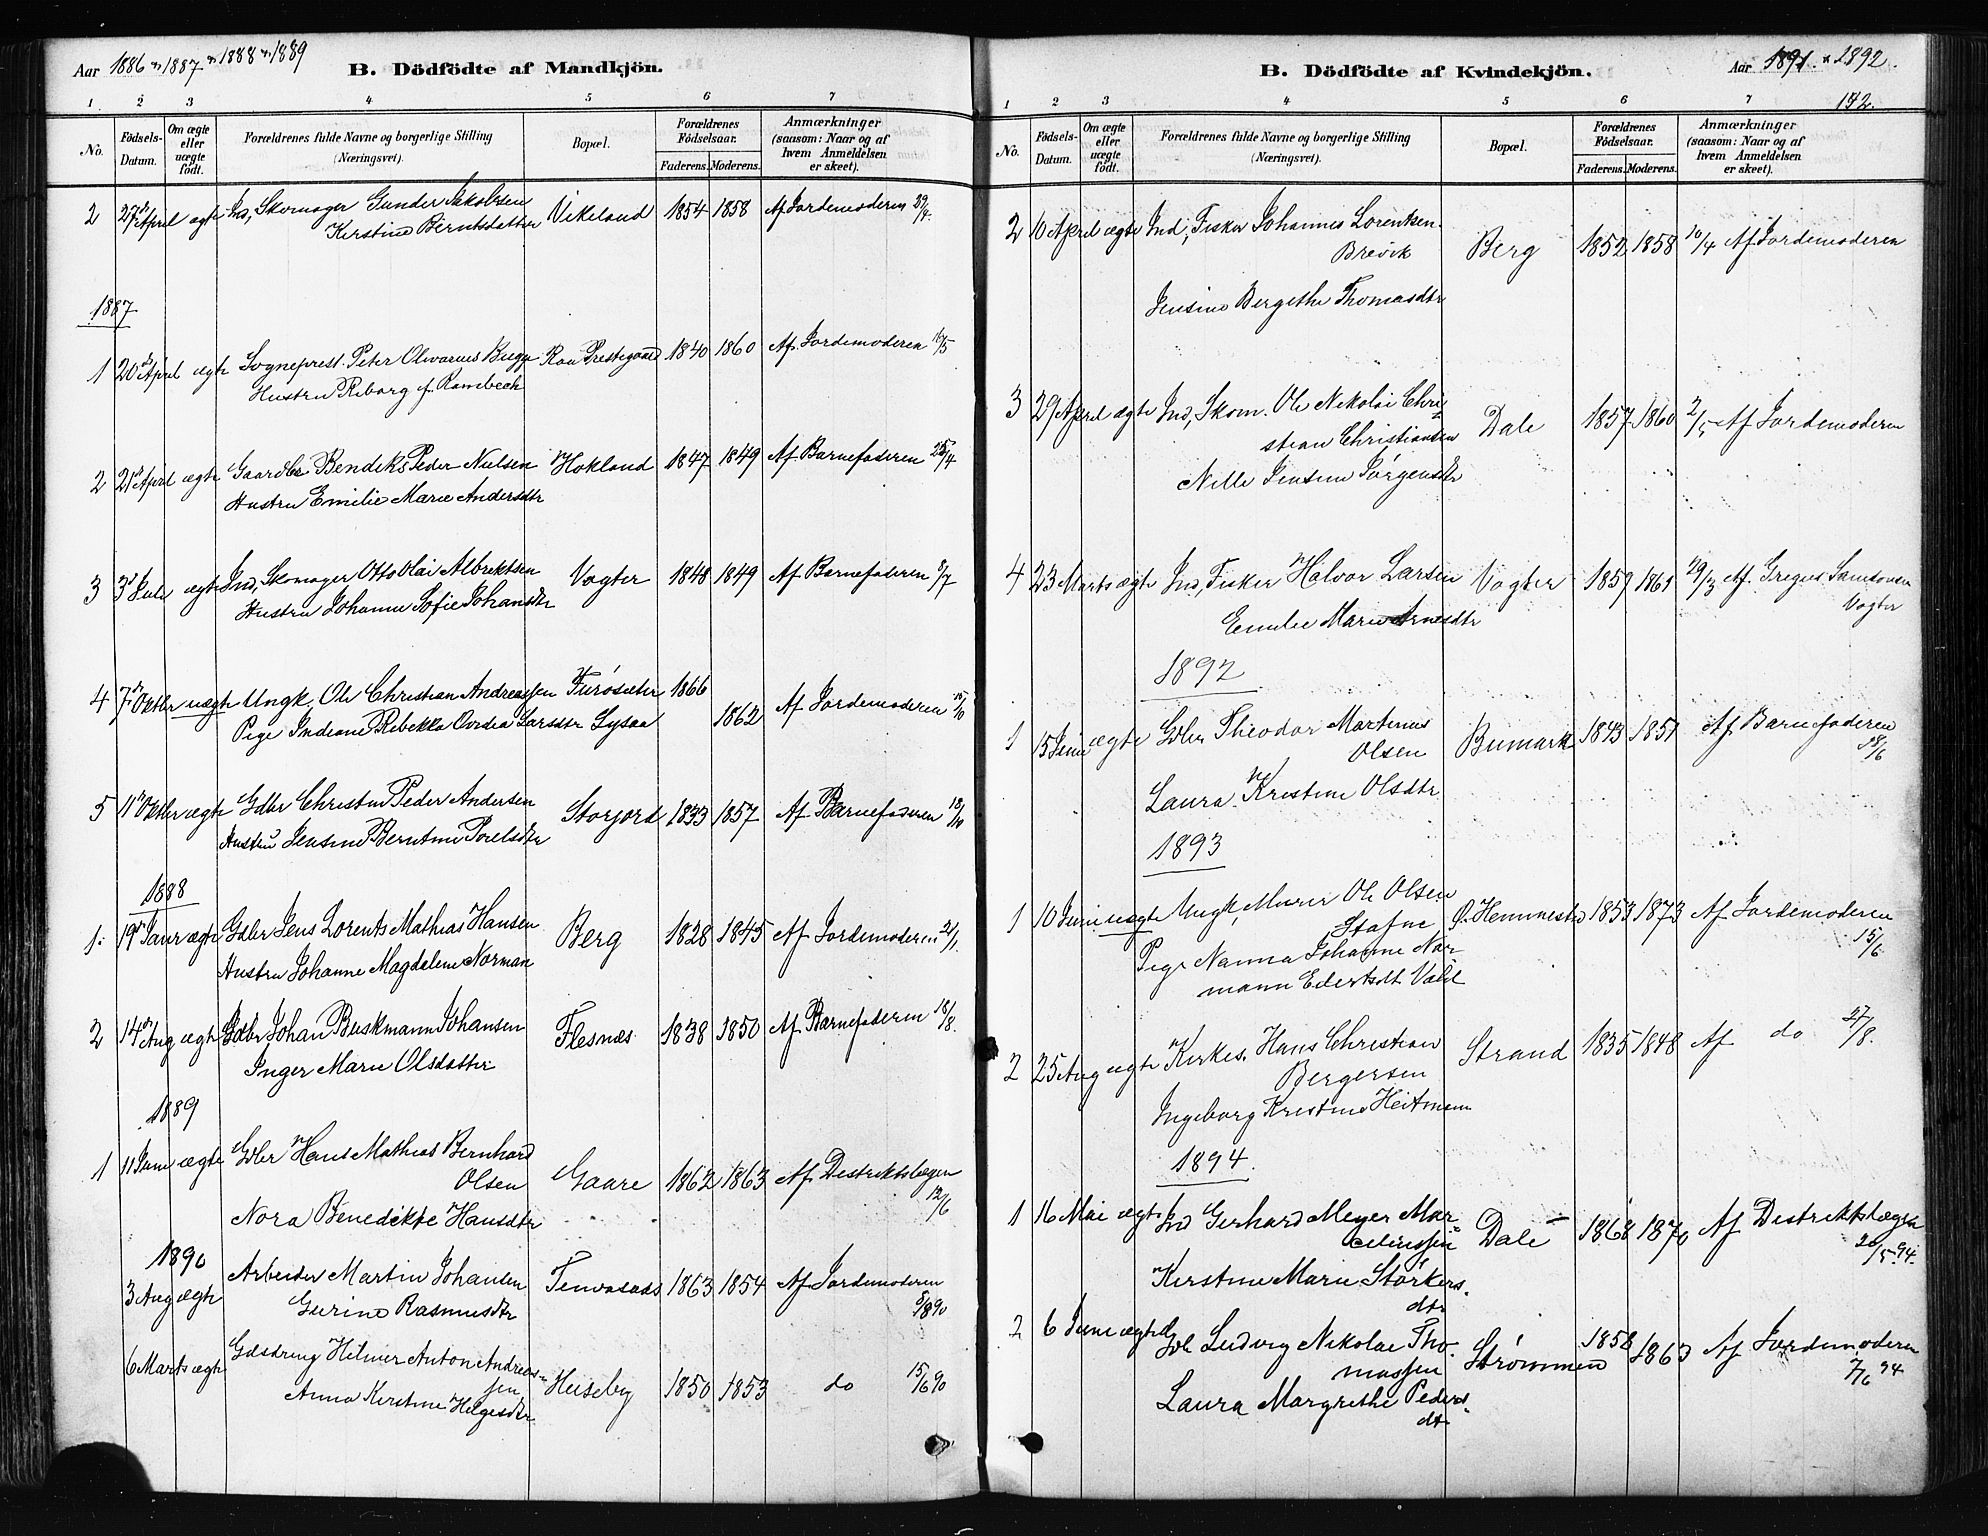 Aar 1886 & 1887 & 1888 & 1889
B. Dödfödte af Mandkjön.
1 2 3 4 5 6 7
No.
Födsels-Datum.
Om ægte eller uægte födt.
Forældrenes fulde Navne og borgerlige Stilling (Næringsvei).
Bopæl.
Forældrenes Födselsaar.
Faderens. Moderens.
Anmærkninger (saasom: Naar og af hvem Anmeldelsen er skeet).
2 27de April ægte Ind, Skomager Gunder Jakobsen Vikeland 1854 1858 Af Jordemoderen 29/4.
Kirstine Berntsdatter
1887
1 20de April ægte Sogneprest Peter Olivarius Bugge Kan Prestegaard 1840 1860 Af Jordemoderen 16/5
Hustru Riborg f. Rambech
2 21de April ægte Gaardbr. Bendiks Peder Nielsen Hokland 1847 1849 Af Barnefaderen 25/4
Hustru Emilie Marie Andersdtr
3 3d Juli ægte Ind, Skomager Otto Olai Albrektsen Vogter 1848 1849 Af Barnefaderen 8/7
Hustru Johanna Sofie Johansdtr
4 7de Oktbr uægte Ungk, Ole Christian Andreassen Furösæter 1866 Af Jordemoderen 15/10
Pige Indiane Rebekka Ovidea Larsdtr Lysaa 1862
5 11te Oktbr ægte Gdbr Christen Peder Andersen Storjord 1833 1857 Af Barnefaderen 18/10
Hustru Jensine Berntine Porelsdtr
1888
1. 19de Janr ægte Gdbr Jens Lorents Mathias Hansen Berg 1828 1845 Af Jordemoderen 21/1.
Hustru Johanne Magdalene Norman
2 14de Aug ægte Gdbr Johan Buskmann Johansen Flesnæs 1838 1850 Af Barnefaderen 18/8.
Inger Marie Olsdatter
1889
1 11 Juni ægte Gdbr Hans Mathias Bernhard
Olsen Gaare 1862 1863 Af Distriktslægen 12/6
Nora Benedikte Hansdtr
1890
3 Aug ægte Arbeider Martin Johansen 1863 1854 Af Jordemoderen
Gurine Rasmusdtr 8/8 90
6 Marts ægte Gdsdreng Hilmer Anton Andreas-
sen Husby 1850 1853 do 15/6 90
Anna Kirstine Helgesdtr.
B. Dödfödte af Kvindekjön.
Aar 1891. & 1892.
142.
1 2 3 4 5 6 7
No.
Födsels-Datum.
Om ægte eller uægte födt.
Forældrenes fulde Navne og borgerlige Stilling (Næringsvei).
Bopæl.
Forældrenes Födselsaar.
Faderens. Moderens.
Anmærkninger (saasom: Naar og af hvem Anmeldelsen er skeet).
2 10 April ægte Ind, Fisker Johannes Lorentsen
Brevik Berg 1852 1858 10/4 Af Jordemoderen
Jensine Bergithe Thomasdtr
3 29 April ægte Ind, Skom. Ole Nikolai Chri-
stian Christiansen Dale 1857 1860 2/5 Af Jordemoderen
Nille Jensine Jörgensdtr
4 23 Marts ægte Ind, Fisker Halvor Larsen Vogter 1857 1861 29/3 Af Gregus Samsonsen
Emilie Marie Arnesdtr Vogter
1892
1 15 Juni ægte Gdbr Theodor Martinus
Olsen Bumark 1843 1851 Af Barnefaderen 18/6
Laura Kristine Olsdtr
1893
1 10 Juni uægte Ungk, Murer Ole Olsen
Stafne Ö. Hemnestad 1853 1873 Af Jordemoderen 15/6
Pige Nanna Johanne Nor-
mann Edertsdt Vold
2 25 Aug ægte Kirkes. Hans Christian Strand 1835 1848 Af do 27/8.
Bergersen
Ingeborg Kristine Heitmann
1894.
1 16 Mai ægte Ind Gerhard Meyer Mar-
celiussen Dale 1868 1870 Af Distriktslægen 20/5 94.
Kirstine Marie Störkers-
dtr
2 6 Juni ægte Gdb Ludvig Nikolai Tho-
massen Strömmen 1858 1863 Af Jordemoderen 7/6 94
Laura Margrethe Peders-
dtr